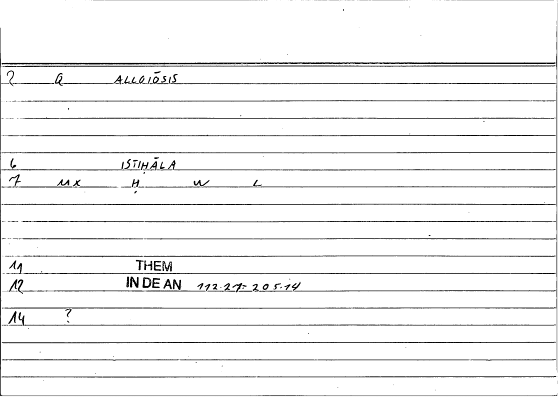 2 G ALLOIŌSIS
6 ISTIḤĀLA
7 MX Ḥ W L
11 THEM
12 IN DE AN 112.27-205.14
14 ?